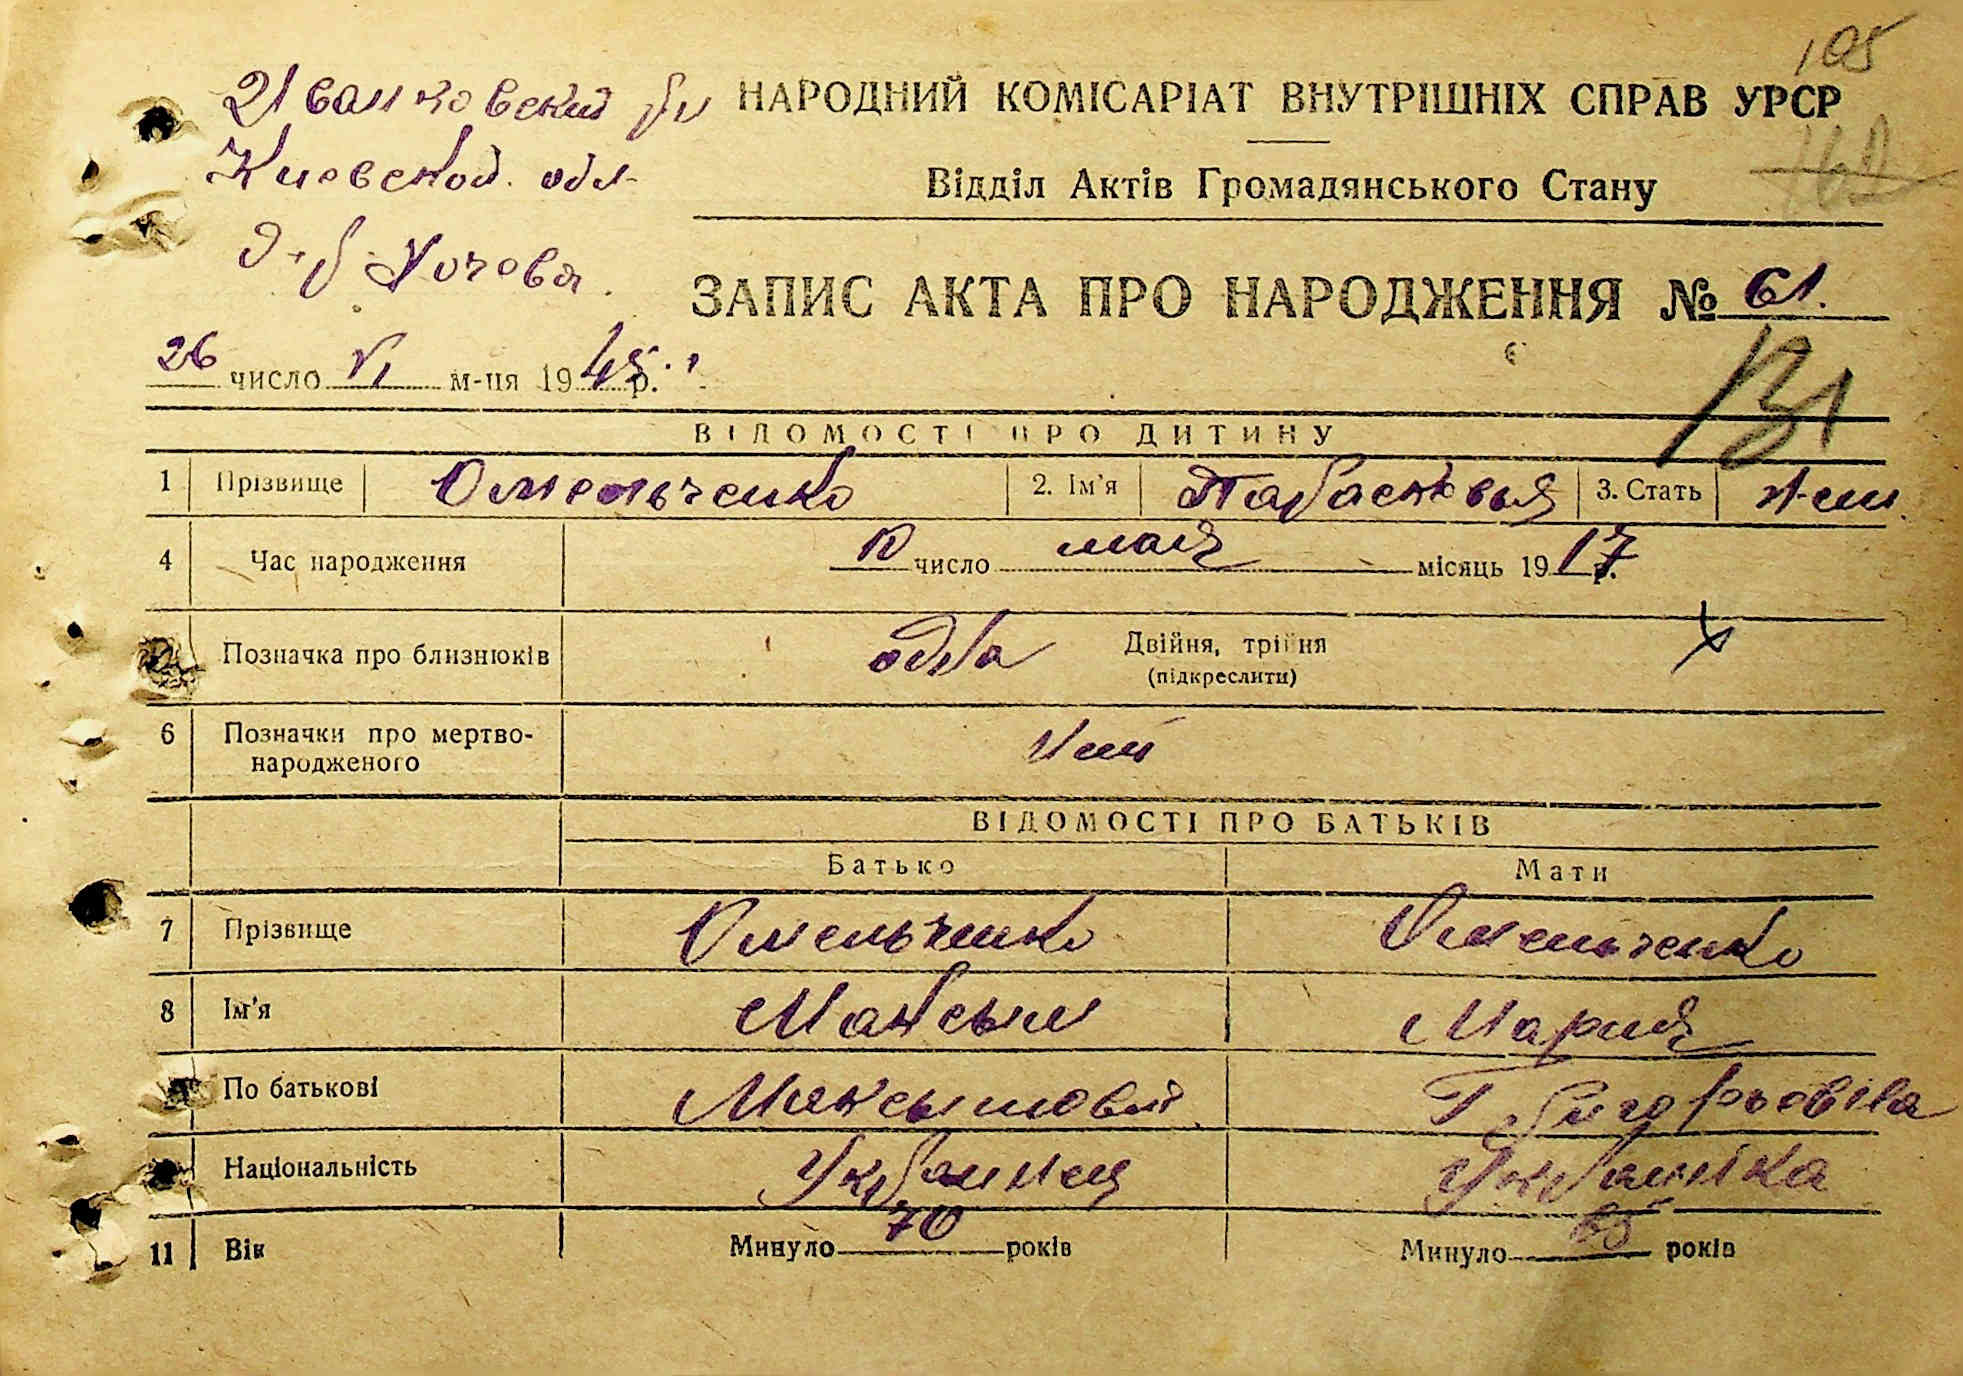 105
Иванковский р-н
НАРОДНИЙ КОМІСАРІАТ ВНУТРІШНІХ СПРАВ УРСР
Киевской обл.
Відділ Актів Громадянського Стану
ЗАПИС АКТА ПРО НАРОДЖЕННЯ № 61.
26 число VI м-ця 1945 р.
131
ВІДОМОСТІ ПРО ДИТИНУ
1 Прізвище Омельченко 2. Ім'я Парасковья 3. Стать жен.
4 Час народження 10 число мая місяць 1917 р.
Позначка про близнюків одна Двійня, трійня
(підкреслити)
6 Позначки про мертво-
народженого
ВІДОМОСТІ ПРО БАТЬКІВ
Батько Мати
7 Прізвище Омельченко Омельченко
8 Ім'я Максым Мария
По батькові Максымовий Григорьовна
Національність Украинец Украинка
11 Вік Минуло 70 років Минуло 65 років